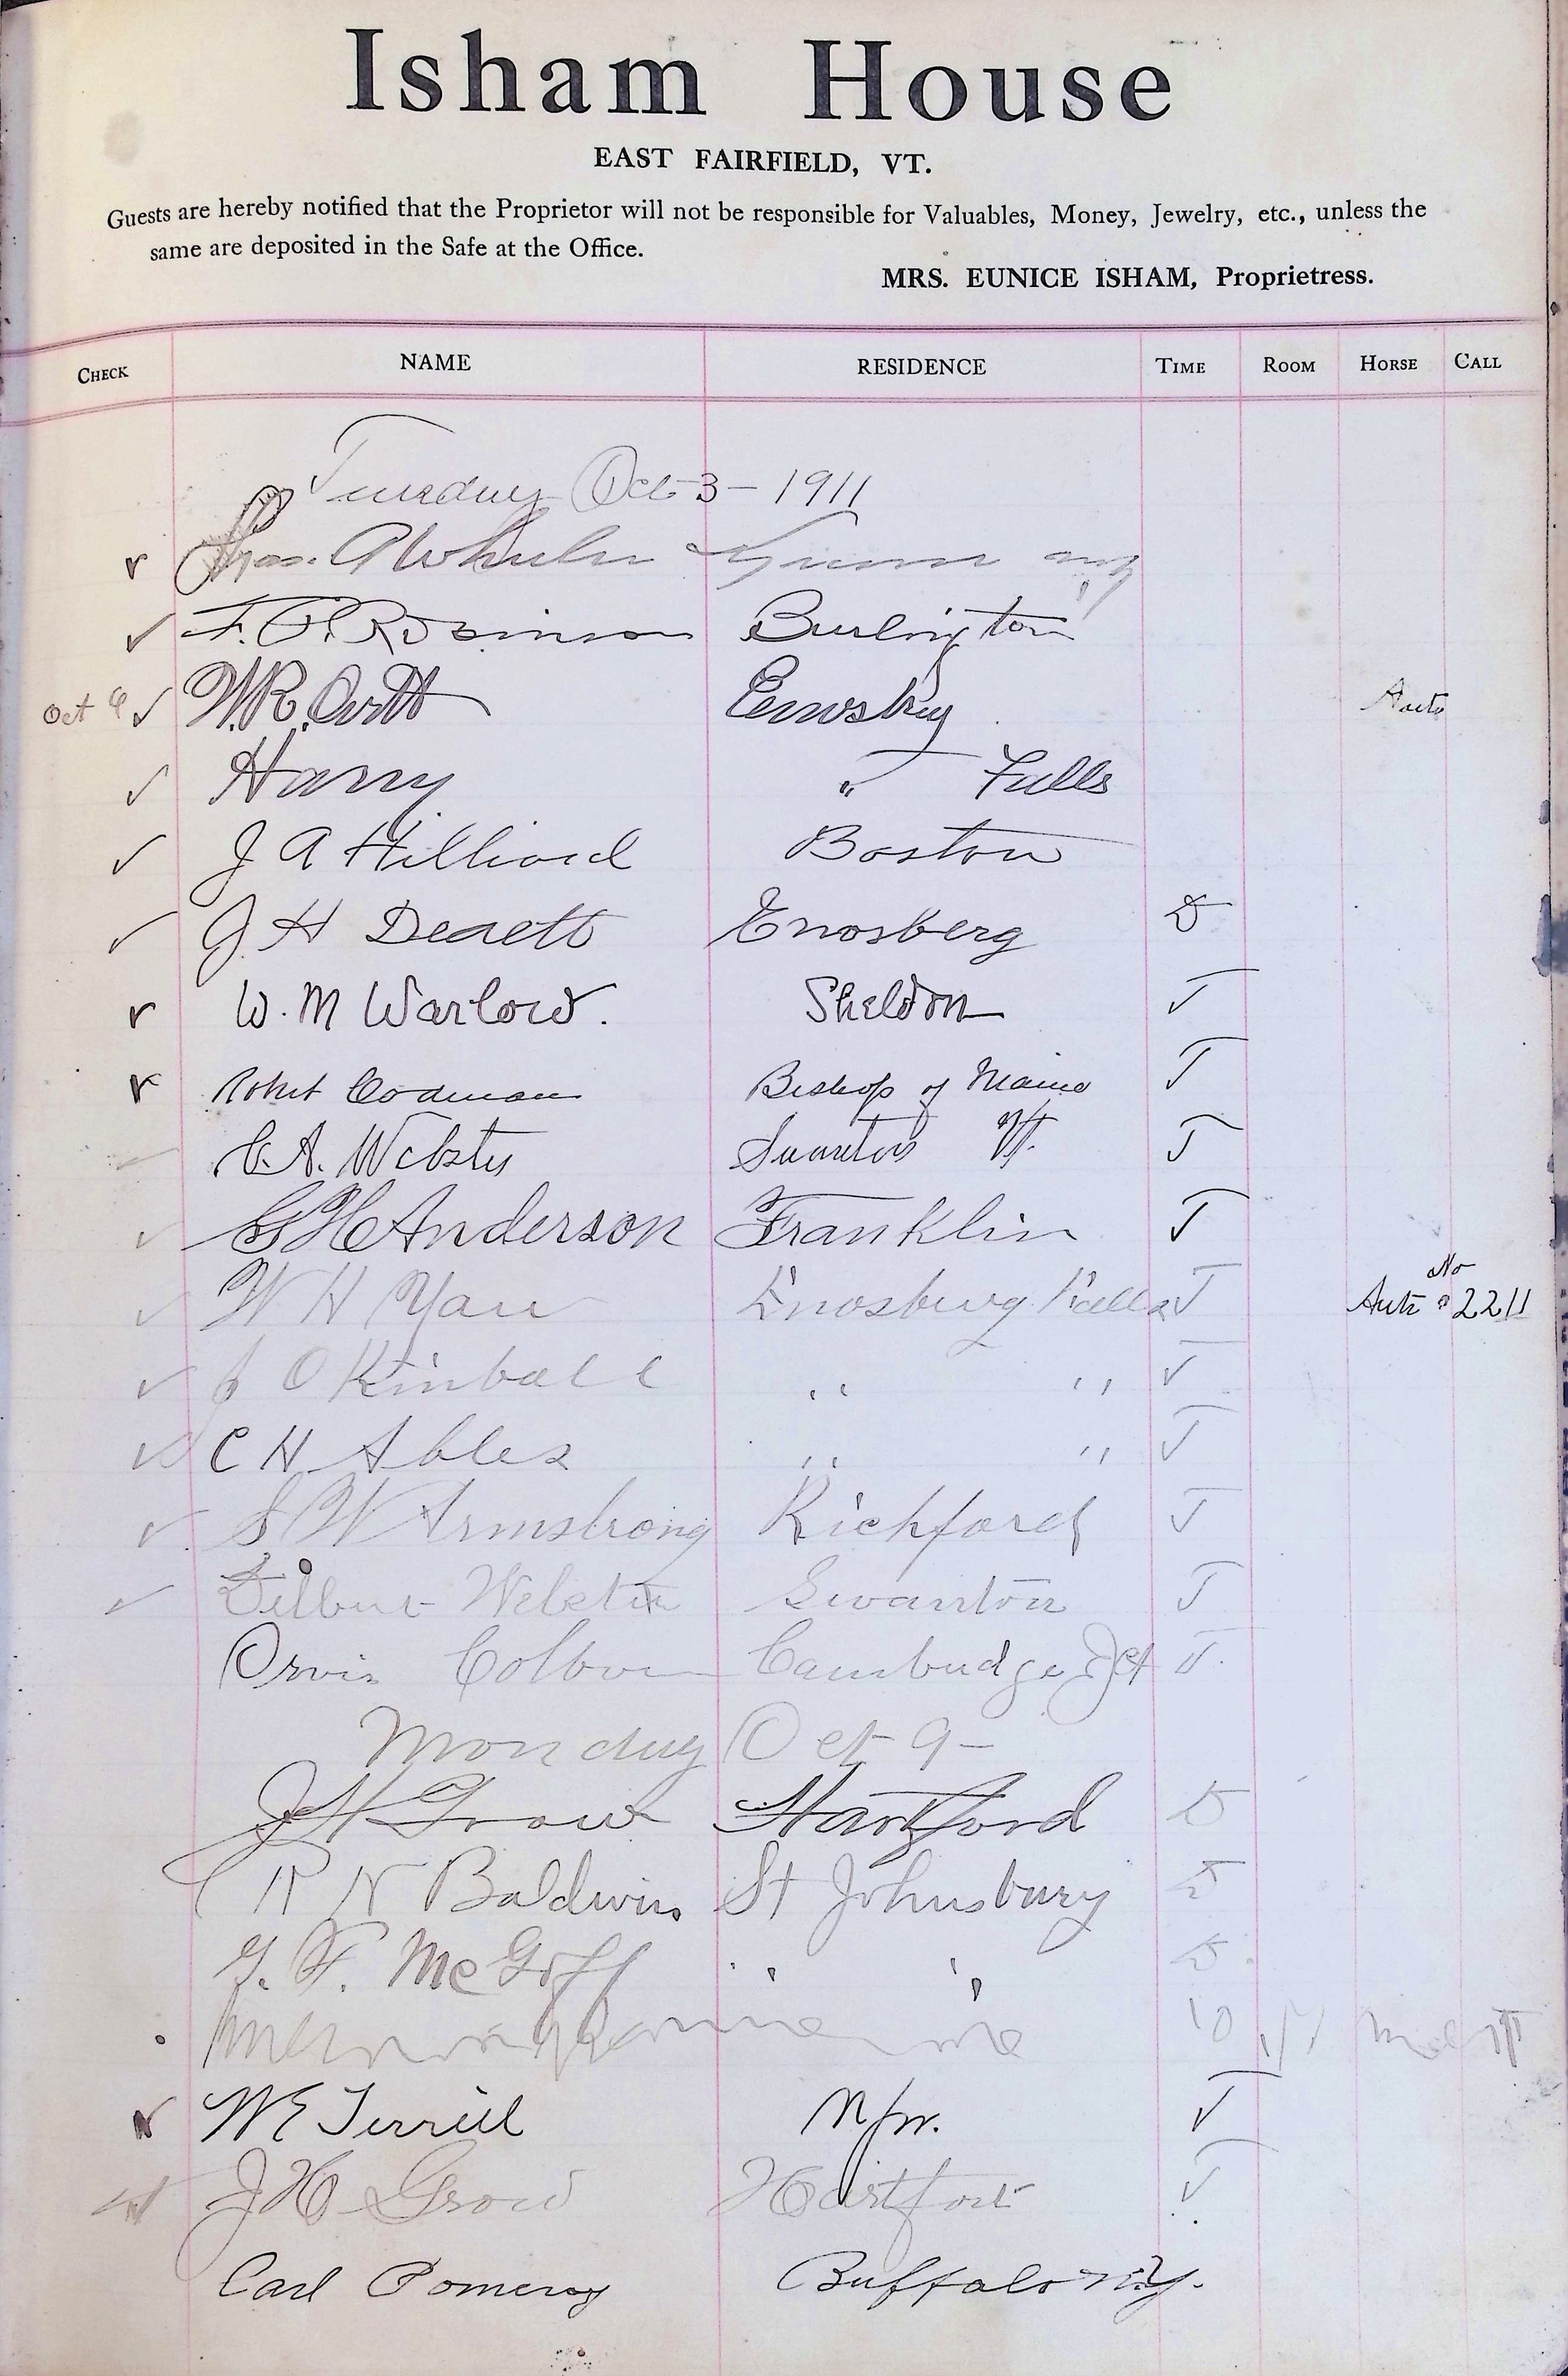 Isham House
EAST FAIRFIELD, VT.
Guests are hereby notified that the Proprietor will not be responsible for Valuables, Money, Jewelry, etc., unless the
same are deposited in the Safe at the Office.
MRS. EUNICE ISHAM, Proprietress.
CHECK NAME RESIDENCE TIME ROOM HORSE CALL
Tuesday Oct 3 - 1911
F. P. Robinson Burlington
Oct W.R. Auto
Harry " Falls
J A Hilliard Boston
J. H Enosberg D
W. M Warlow. Sheldon T
Robert Codman Bishop of Maine T
C. A. Webster Swanton Vt. T
G H Anderson Franklin T
No
W H Yaw Enosburg Falls T Auto 2211
J O Kimball " " T
C H Ables " " T
S W Armstrong Richford T
Webster Swanton T
Orvis Cambridge Jct T
Monday Oct 9 -
J H Grow Hartford D
R N Baldwin St Johnsbury
F. McGoff " "
10
W E Terrill T
J H Grow Hartford T
Carl Pomeroy Buffalo N.Y.